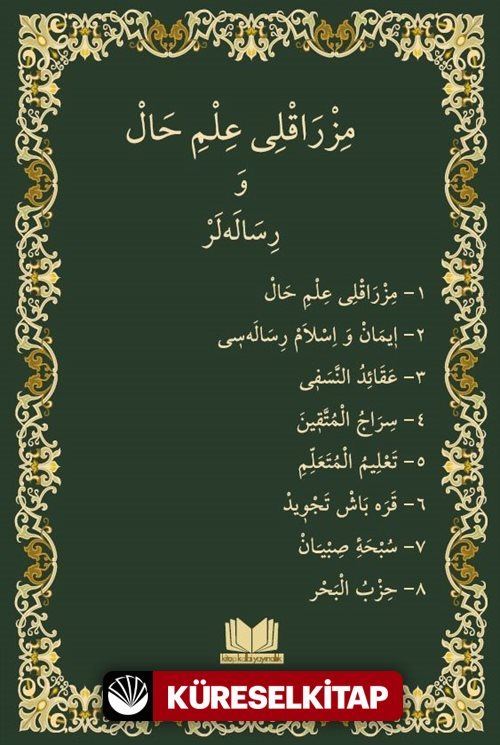 مِزْرَاقْلِى عِلْمِ حَالْ
وَ
رِسَالَه‌لَرْ
١- مِزْرَاقْلِى عِلْمِ حَالْ
٢- اٖيمَانْ وَ اِسْلَامْ رِسَالَه‌سِى
٣- عَقَائِدُ النَّسَفٖى
٤- سِرَاجُ الْمُتَّقٖينَ
٥- تَعْلٖيمُ الْمُتَعَلِّمِ
٦- قَرَه بَاشْ تَجْوٖيدْ
٧- سُبْحَۀِ صِبْيَانْ
٨- حِزْبُ الْبَحْرِ
kitap kalbi yayıncılık
KÜRESELKİTAP